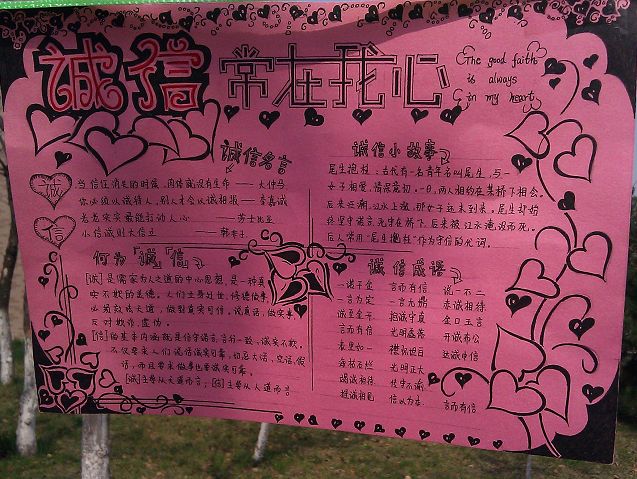 诚信常在我心
The good faith
is always
in my heart
诚信名言
当信任消失的时候,肉体就没有生命——大仲马
你必须以诚待人,别人才会以诚相报——李嘉诚
老老实实最能打动人心——莎士比亚
小信诚则大信立——韩非子
诚
信
诚信小故事
尾生抱柱:古代有一名青年名叫尾生,与一
女子相爱,情深意切。一日,两人相约在某桥下相会。
后来
尾生却始
后人常用“尾生抱柱”作为守信的代词。
何为『诚』『信』
[诚]是儒家为人之道的中心思想,是一种真
实不欺的美德。人们立身处世,修德做事,
必须效法天道,做到真实可信。说真话,做实事,
反对欺诈、虚伪。
[信]的基本内涵就是信守诺言、言行一致、诚实不欺。
不仅要求人们说话诚实可靠,切忌大话、空话、假
话,而且要求做事也要诚实可靠。
[诚]主要从天道而言;[信]主要从人道而言
诚信成语
一诺千金 言而有信 说一不二
一言为定 一言九鼎 素诚相待
诚至金开 抱诚守真 金口玉言
言而有信 光明磊落 开诚布公
表里如一
海枯石烂 光明正大
竭诚相待
推诚相见 信以为本 言而有信